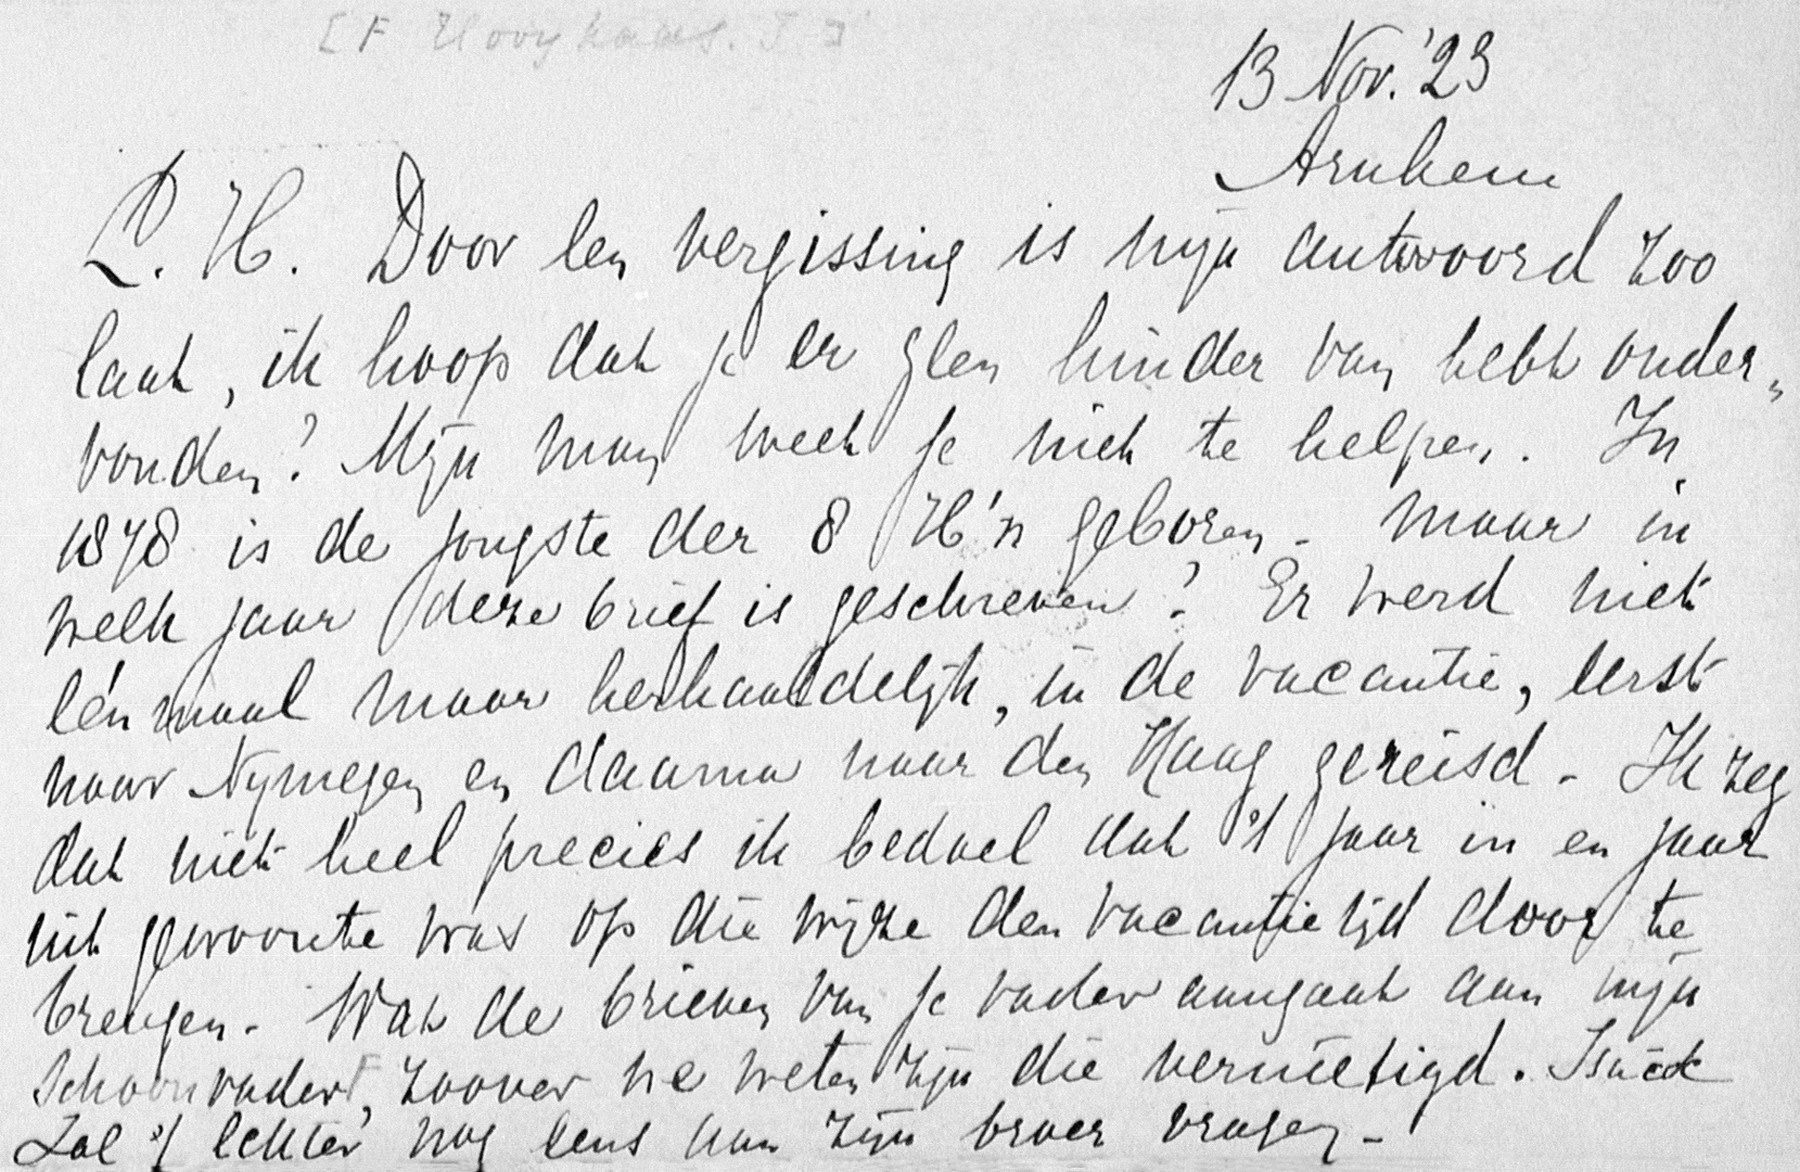 [F Hooykaas. J.]
13 Nov. '23
Arnhem
L. H. Door een vergissing is mijn antwoord zoo
laat, ik hoop dat je er geen hinder van hebt onder„
vonden? Mijn man weet je niet te helpen. In
1878 is de jongste der 8 H's geboren - maar in
welk jaar deze brief is geschreven? Er werd niet
éénmaal maar herhaaldelijk, in de vacantie, eerst
naar Nymegen en daarna naar den Haag gereisd - Ik zeg
dat niet heel precies ik bedoel dat 't jaar in en jaar
uit gewoonte was op die wijze den vacantietijd door te
brengen. Wat de brieven van je vader aangaat aan mijn
Schoonvader, zoover we weten zijn die vernietigd. Isaäc
Zal 't echter nog eens aan zijn broer vragen -